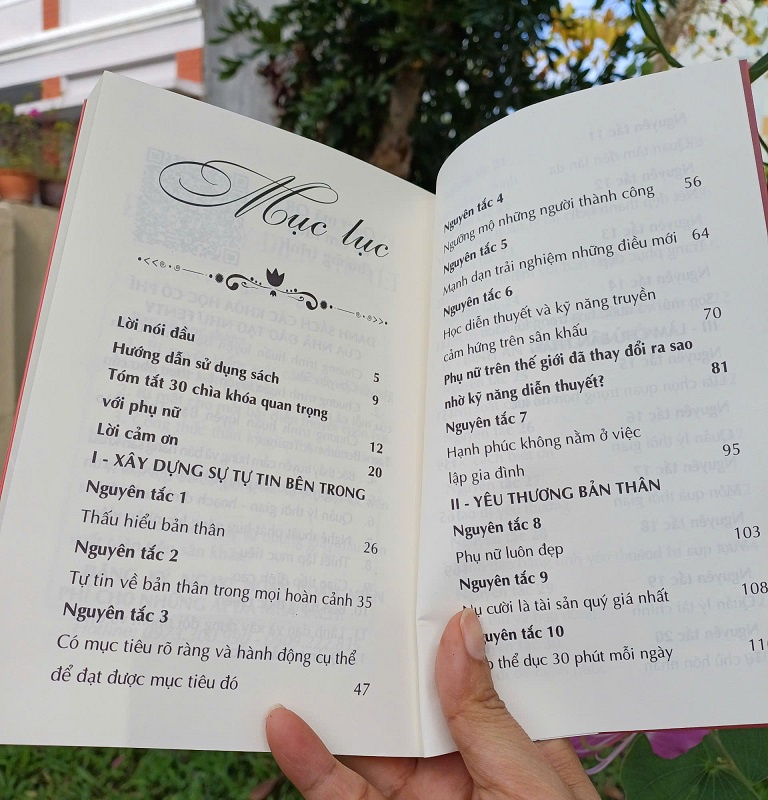 Mục lục
Lời nói đầu 5
Hướng dẫn sử dụng sách 9
Tóm tắt 30 chìa khóa quan trọng
với phụ nữ 12
Lời cảm ơn 20
I - XÂY DỰNG SỰ TỰ TIN BÊN TRONG
Nguyên tắc 1
Thấu hiểu bản thân 26
Nguyên tắc 2
Tự tin về bản thân trong mọi hoàn cảnh 35
Nguyên tắc 3
Có mục tiêu rõ ràng và hành động cụ thể
để đạt được mục tiêu đó 47
Nguyên tắc 4
Ngưỡng mộ những người thành công 56
Nguyên tắc 5
Mạnh dạn trải nghiệm những điều mới 64
Nguyên tắc 6
Học diễn thuyết và kỹ năng truyền
cảm hứng trên sân khấu 70
Phụ nữ trên thế giới đã thay đổi ra sao
nhờ kỹ năng diễn thuyết? 81
Nguyên tắc 7
Hạnh phúc không nằm ở việc
lập gia đình 95
II - YÊU THƯƠNG BẢN THÂN
Nguyên tắc 8
Phụ nữ luôn đẹp 103
Nguyên tắc 9
cười là tài sản quý giá nhất 108
tắc 10
thể dục 30 phút mỗi ngày